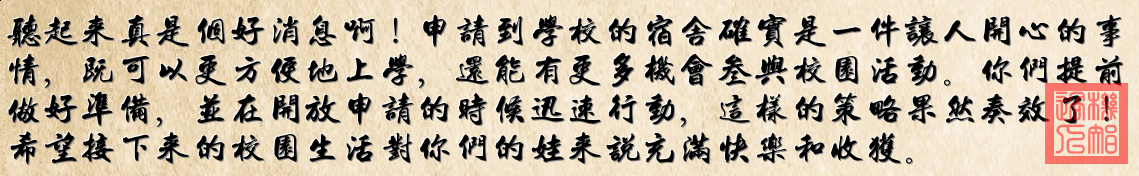 聽起来真是個好消息啊！申請到學校的宿舍確實是一件讓人開心的事
情，既可以更方便地上學，還能有更多機會叁與校園活動。你們提前
做好準備，並在開放申請的時候迅速行動，這樣的策略果然奏效了！
希望接下来的校園生活對你們的娃来說充滿快樂和收獲。